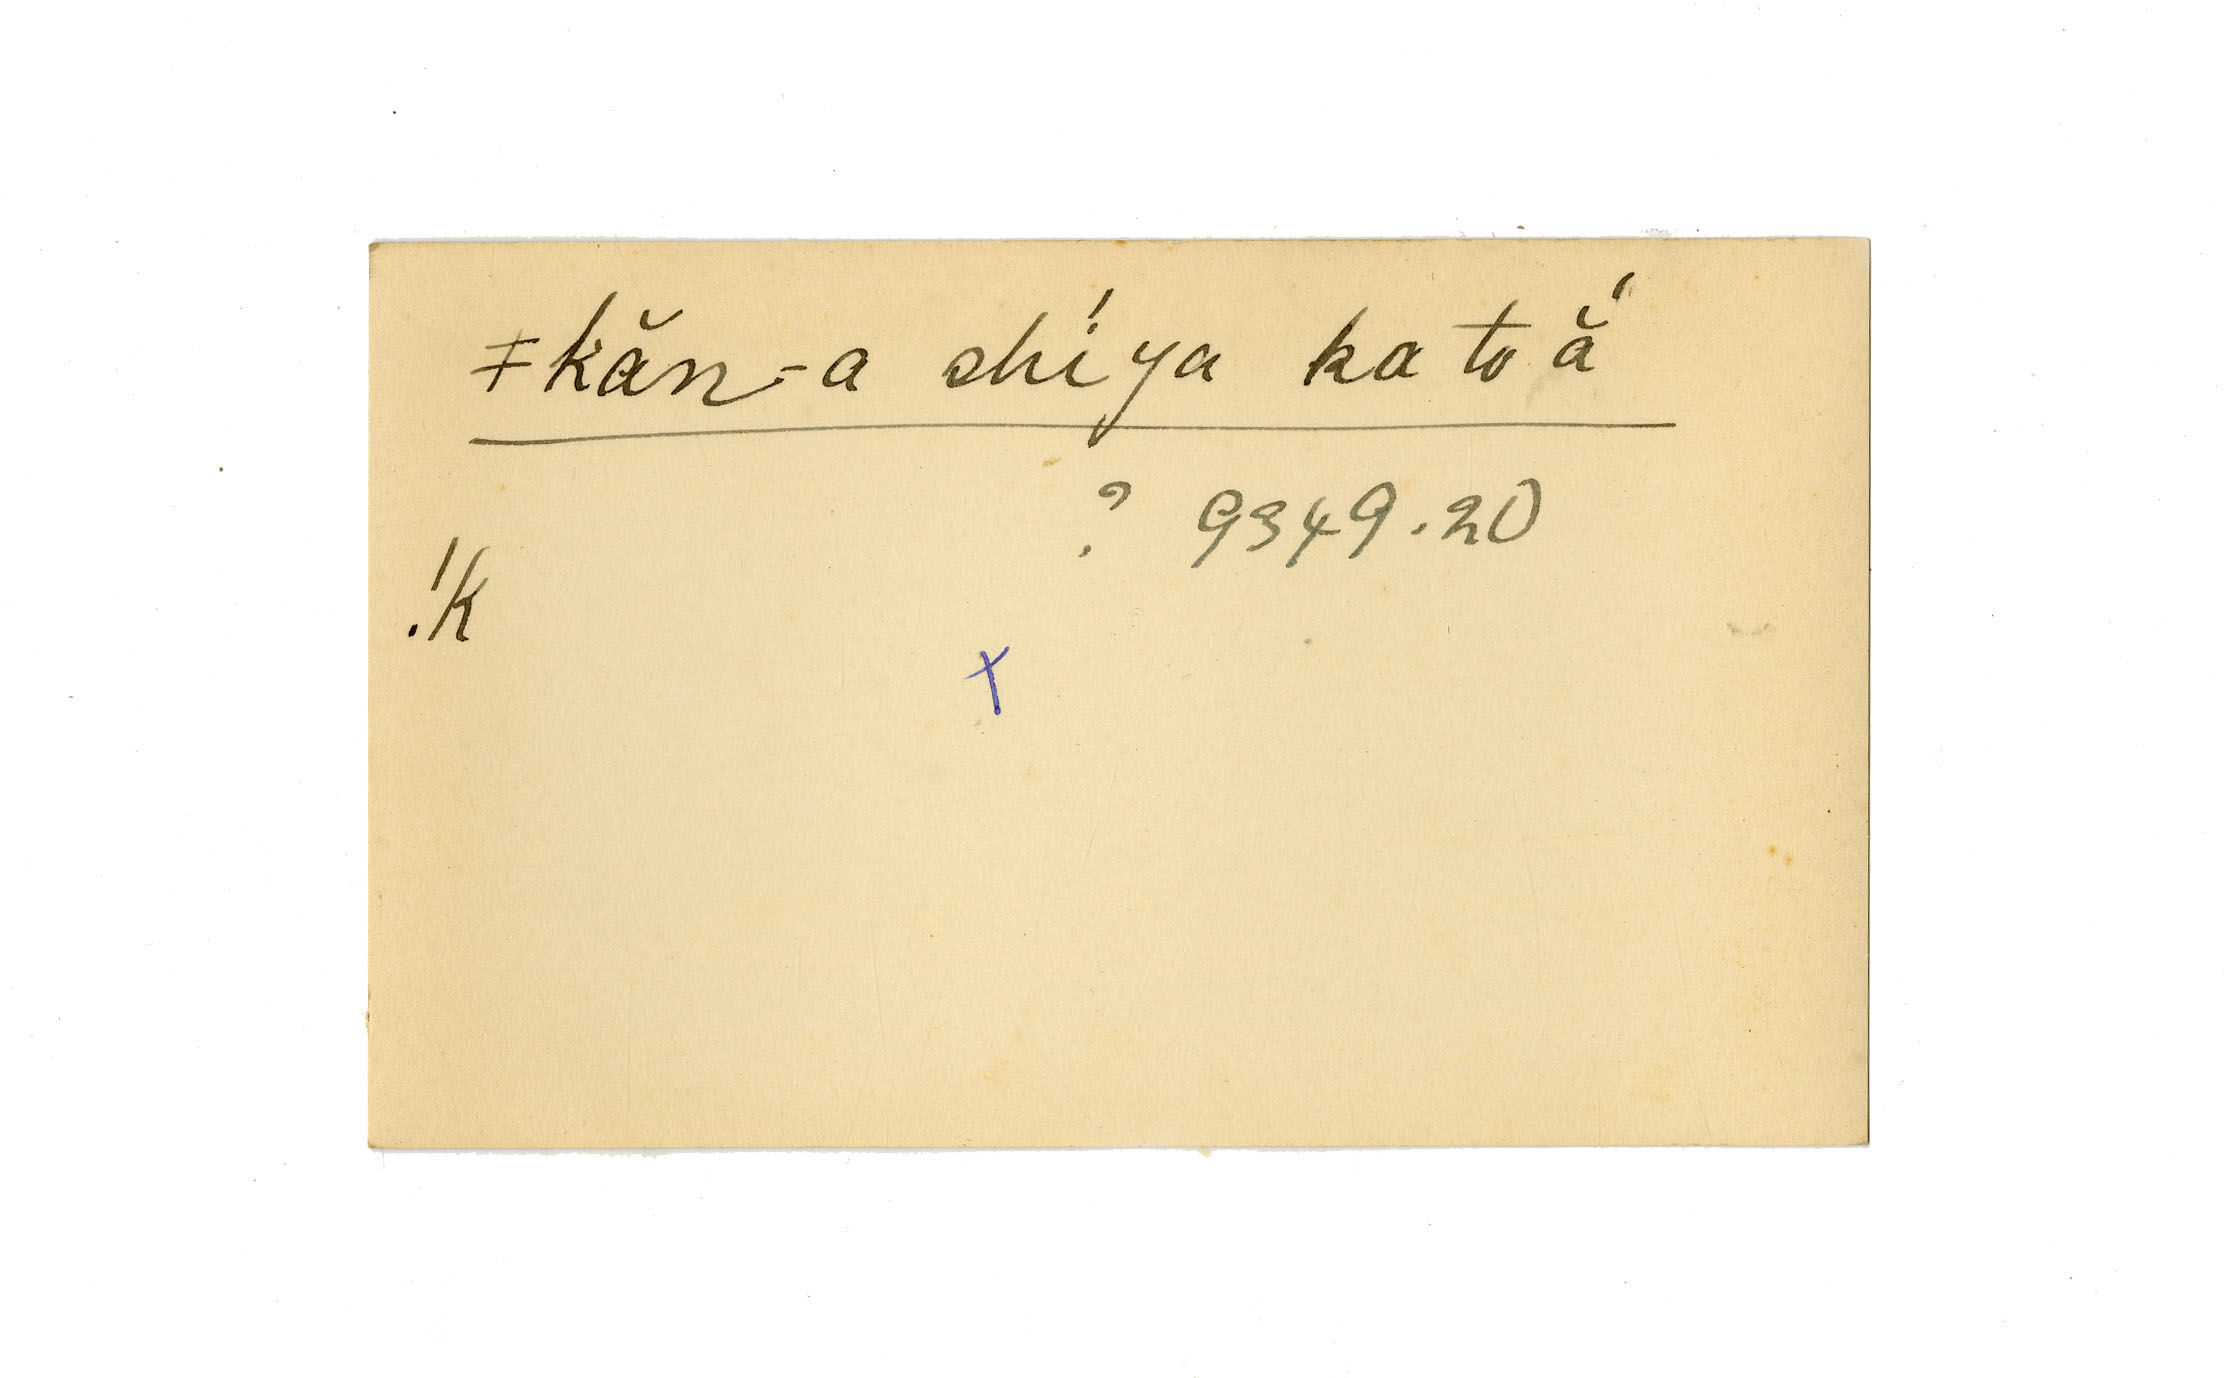 ǂkăn-a shí ya ka to ắ
? 9349.20
!k
x